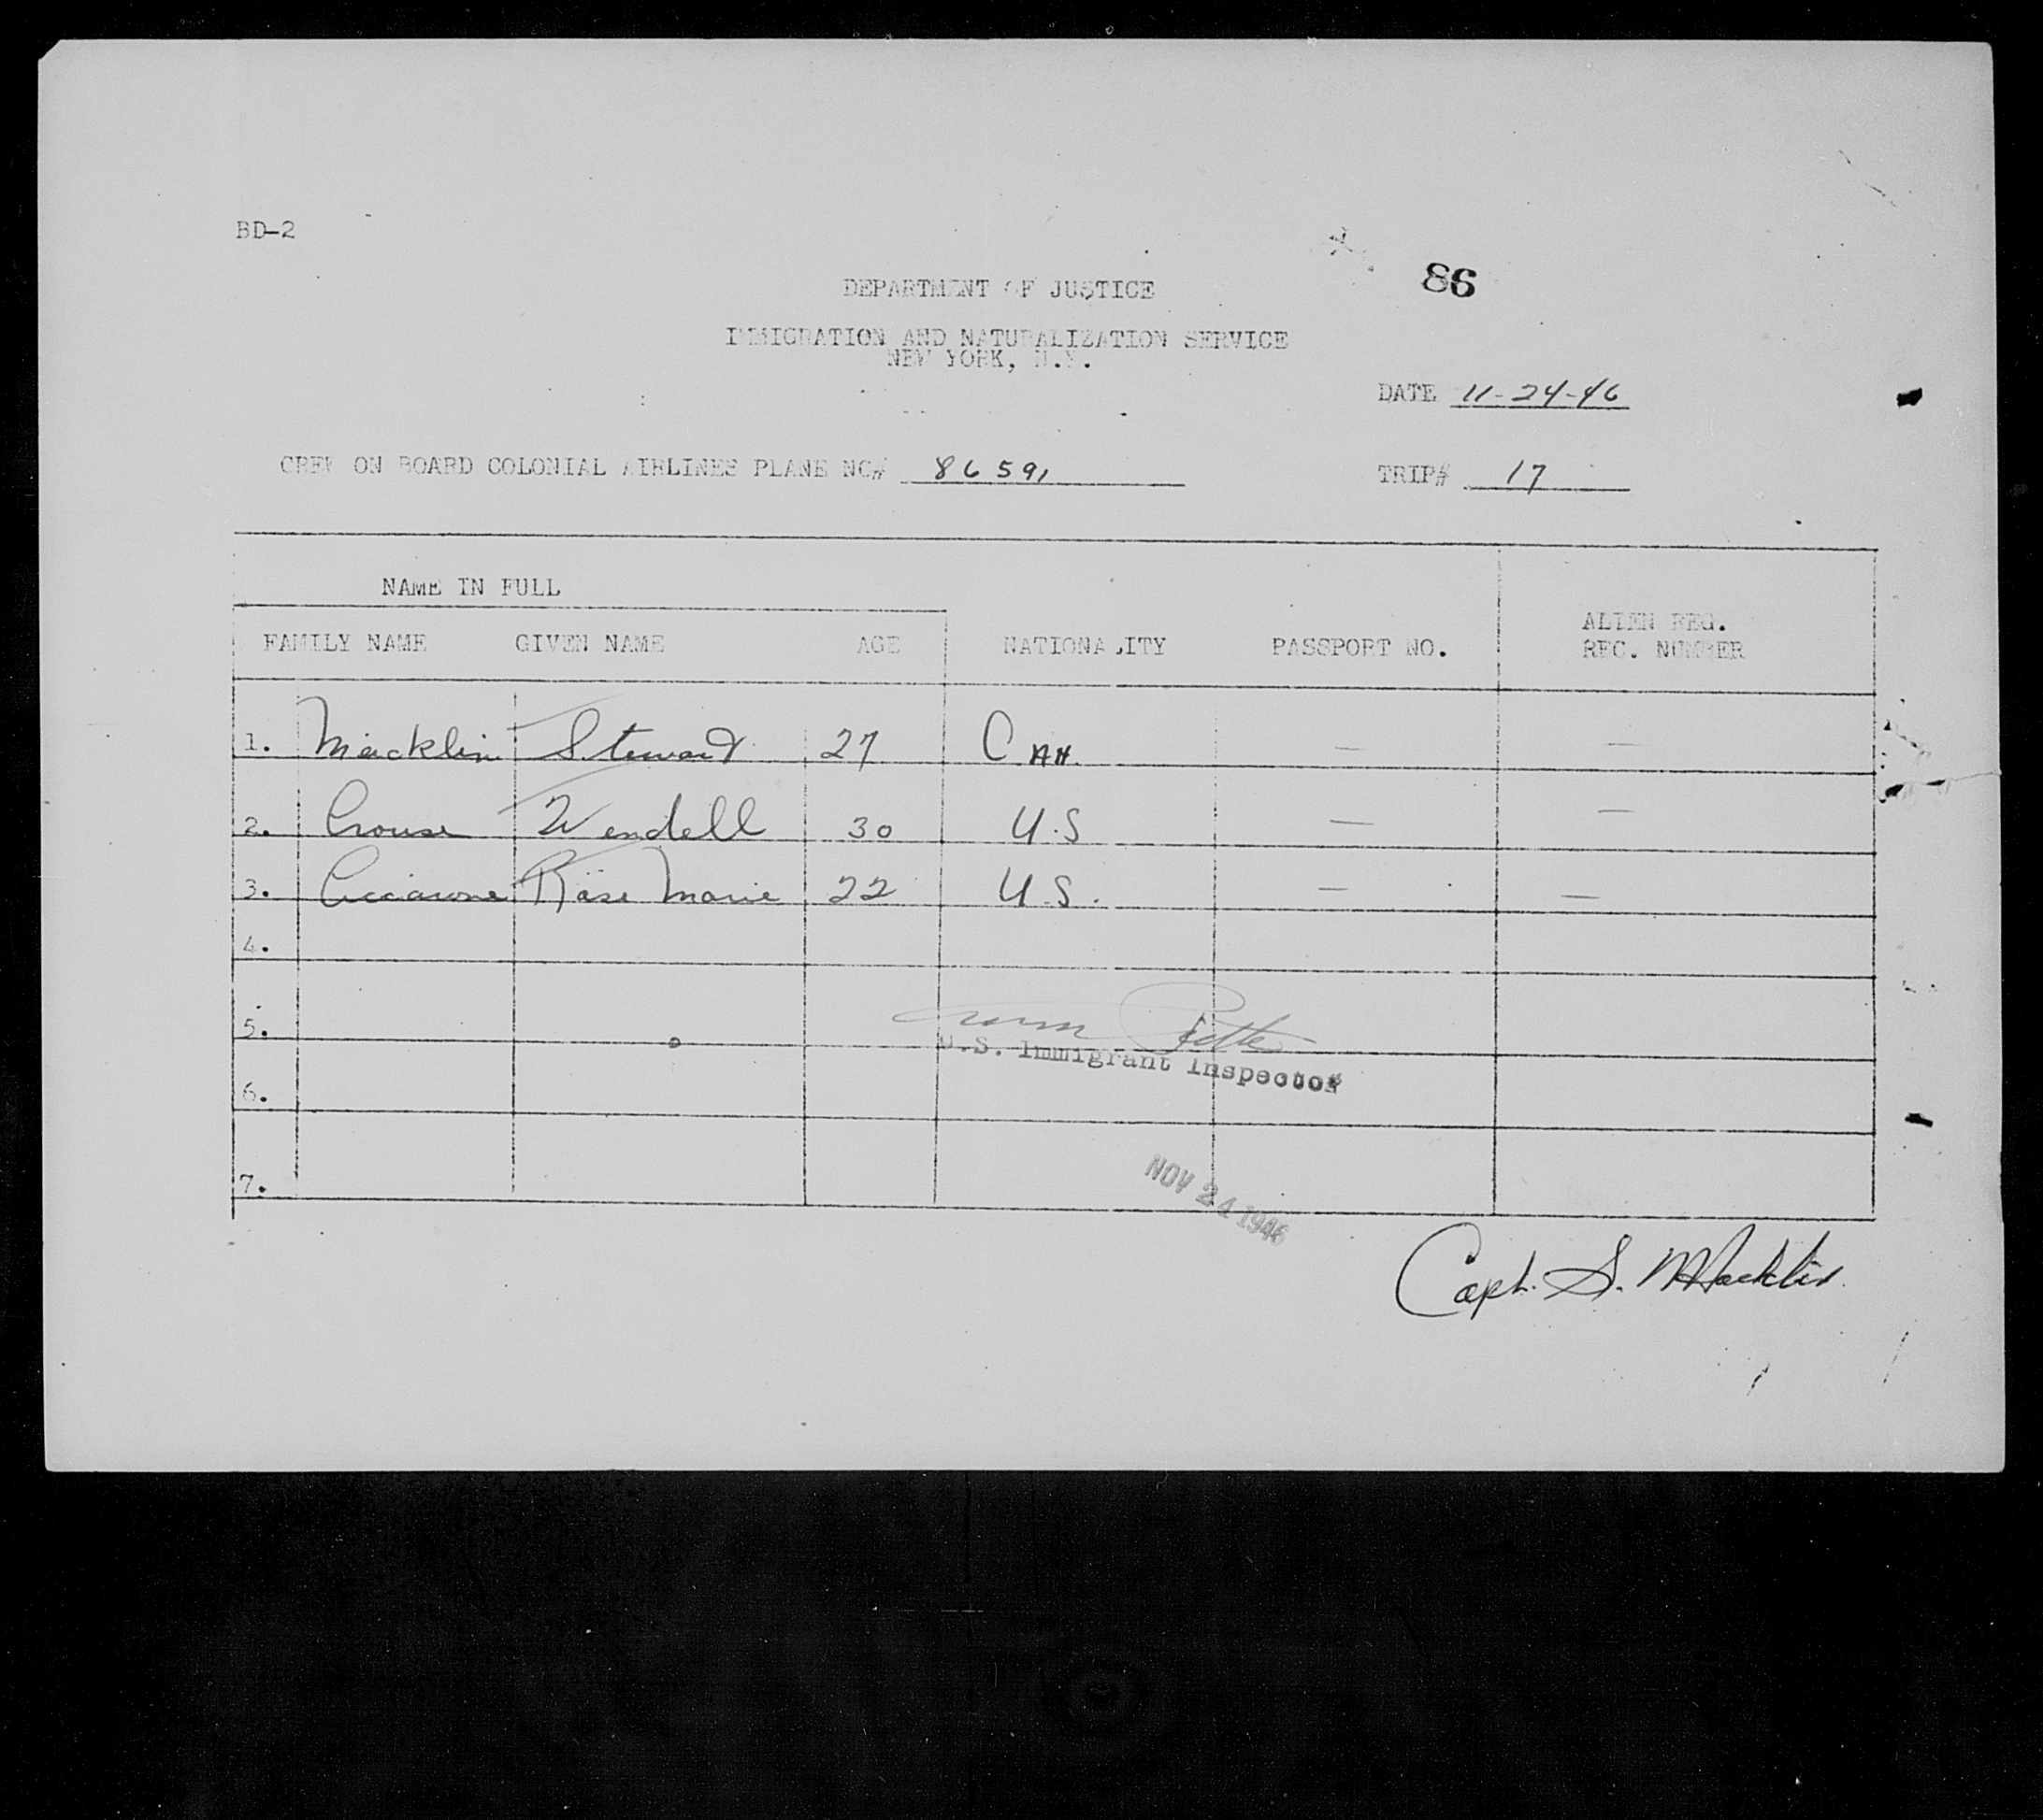 BD-2
86
DEPARTMENT OF JUSTICE
IMMIGRATION AND NATURALIZATION SERVICE
NEW YORK, N.Y.
DATE 11-24-46
CREW ON BOARD COLONIAL AIRLINES PLANE NC# 86591
TRIP# 17
NAME IN FULL
FAMILY NAME GIVEN NAME AGE NATIONALITY PASSPORT NO. ALIEN REG. REC. NUMBER
1. Macklin Steward 27 CAN — —
2. Crouse Wendell 30 U.S — —
3. Rose Marie 22 U.S. — —
4.
5.
U.S. Immigrant Inspector
6.
7.
NOV 24 1946
Capt. S. Macklin